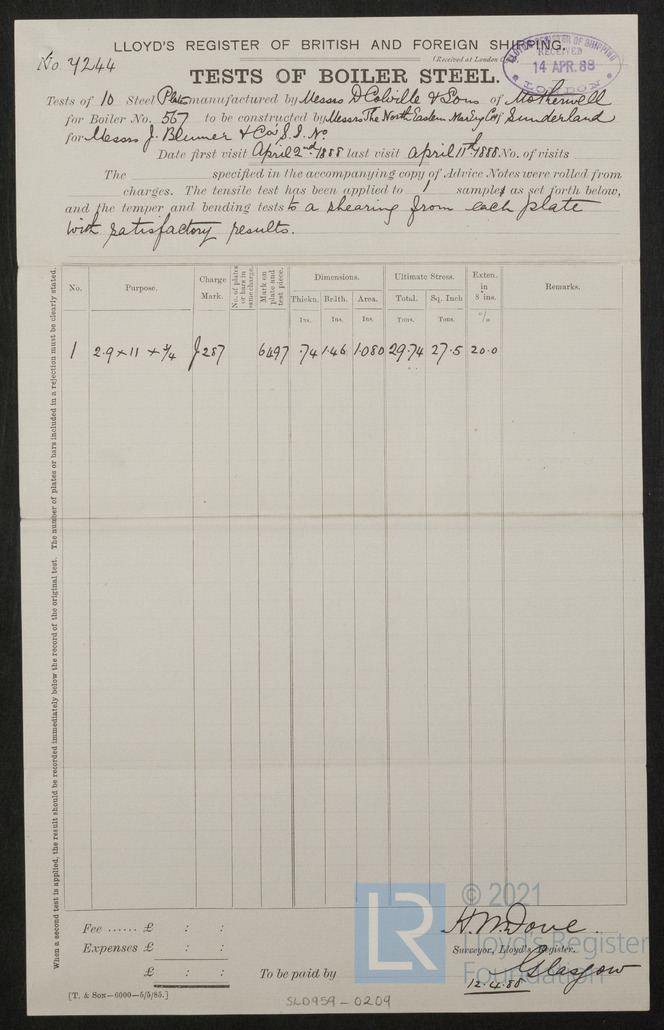 LLOYD'S REGISTER OF BRITISH AND FOREIGN SHIPPING.
No. 4244
(Received at London O
LLOYD'S REGISTER OF SHIPPING
RECEIVED
14 APR. 88
LONDON
TESTS OF BOILER STEEL.
Tests of 10 Steel Plates manufactured by Messrs D Colville & Sons of Motherwell
for Boiler No. 567 to be constructed by Messrs The North Eastern Mar Eng Co of Sunderland
for Messrs J. Blumer & Co's S.S. No
Date first visit April 2nd 1888 last visit April 11th 1888. No. of visits
The specified in the accompanying copy of Advice Notes were rolled from
charges. The tensile test has been applied to 1 samples as set forth below,
and the temper and bending tests to a shearing from each plate
with satisfactory results.
When a second test is applied, the result should be recorded immediately below the record of the original test. The number of plates or bars included in a rejection must be clearly stated.
No. Purpose. Charge Mark. No. of plates or bars in same charge. Mark on plate and test piece. Dimensions. Ultimate Stress. Exten. in 8 ins. Remarks.
Thickn. Br.lth. Area. Total. Sq. Inch
Ins. Ins. Ins. Tons. Tons. %
1 2.9 × 11 × 3/4 J 287 6497 .74 1.46 1.080 29.74 27.5 20.0
Fee ...... £ : :
Expenses £ : :
£ : :
To be paid by
H. W. Dove.
Surveyor, Lloyd's Register,
Glasgow
12.4.88
[T. & Son—6000—5/5/85.]
SLD959-0209
© 2021
LR
Lloyd's Register
Foundation